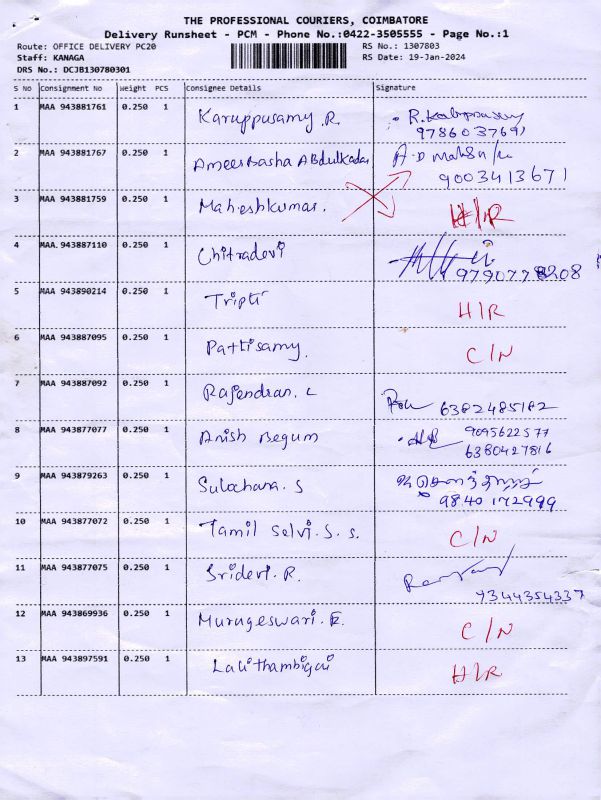 THE PROFESSIONAL COURIERS, COIMBATORE
Delivery Runsheet - PCM - Phone No.:0422-3505555 - Page No.:1
Route: OFFICE DELIVERY PC20 RS No.: 1307803
Staff: KANAGA RS Date: 19-Jan-2024
DRS No.: DCJB130780301
S No Consignment No Weight PCS Consignee Details Signature
1 MAA 943881761 0.250 1 Karuppusamy .R.
9786037691
2 MAA 943881767 0.250 1 Ameerbasha Abdulkadar
9003413671
3 MAA 943881759 0.250 1 Maheshkumar. H/R
4 MAA 943887110 0.250 1 Chitradevi
5 MAA 943890214 0.250 1 Tripti H/R
6 MAA 943887095 0.250 1 Pattisamy. C/N
7 MAA 943887092 0.250 1 Rajendran. L 6382485182
8 MAA 943877077 0.250 1 Anish Begum 9095622577
6380427816
9 MAA 943879263 0.250 1 Sulochana. S
9840172999
10 MAA 943877072 0.250 1 Tamil Selvi. S. S. C/N
11 MAA 943877075 0.250 1 Sridevi. R.
7344354337
12 MAA 943869936 0.250 1 Murugeswari. E. C/N
13 MAA 943897591 0.250 1 Lalithambigai H/R